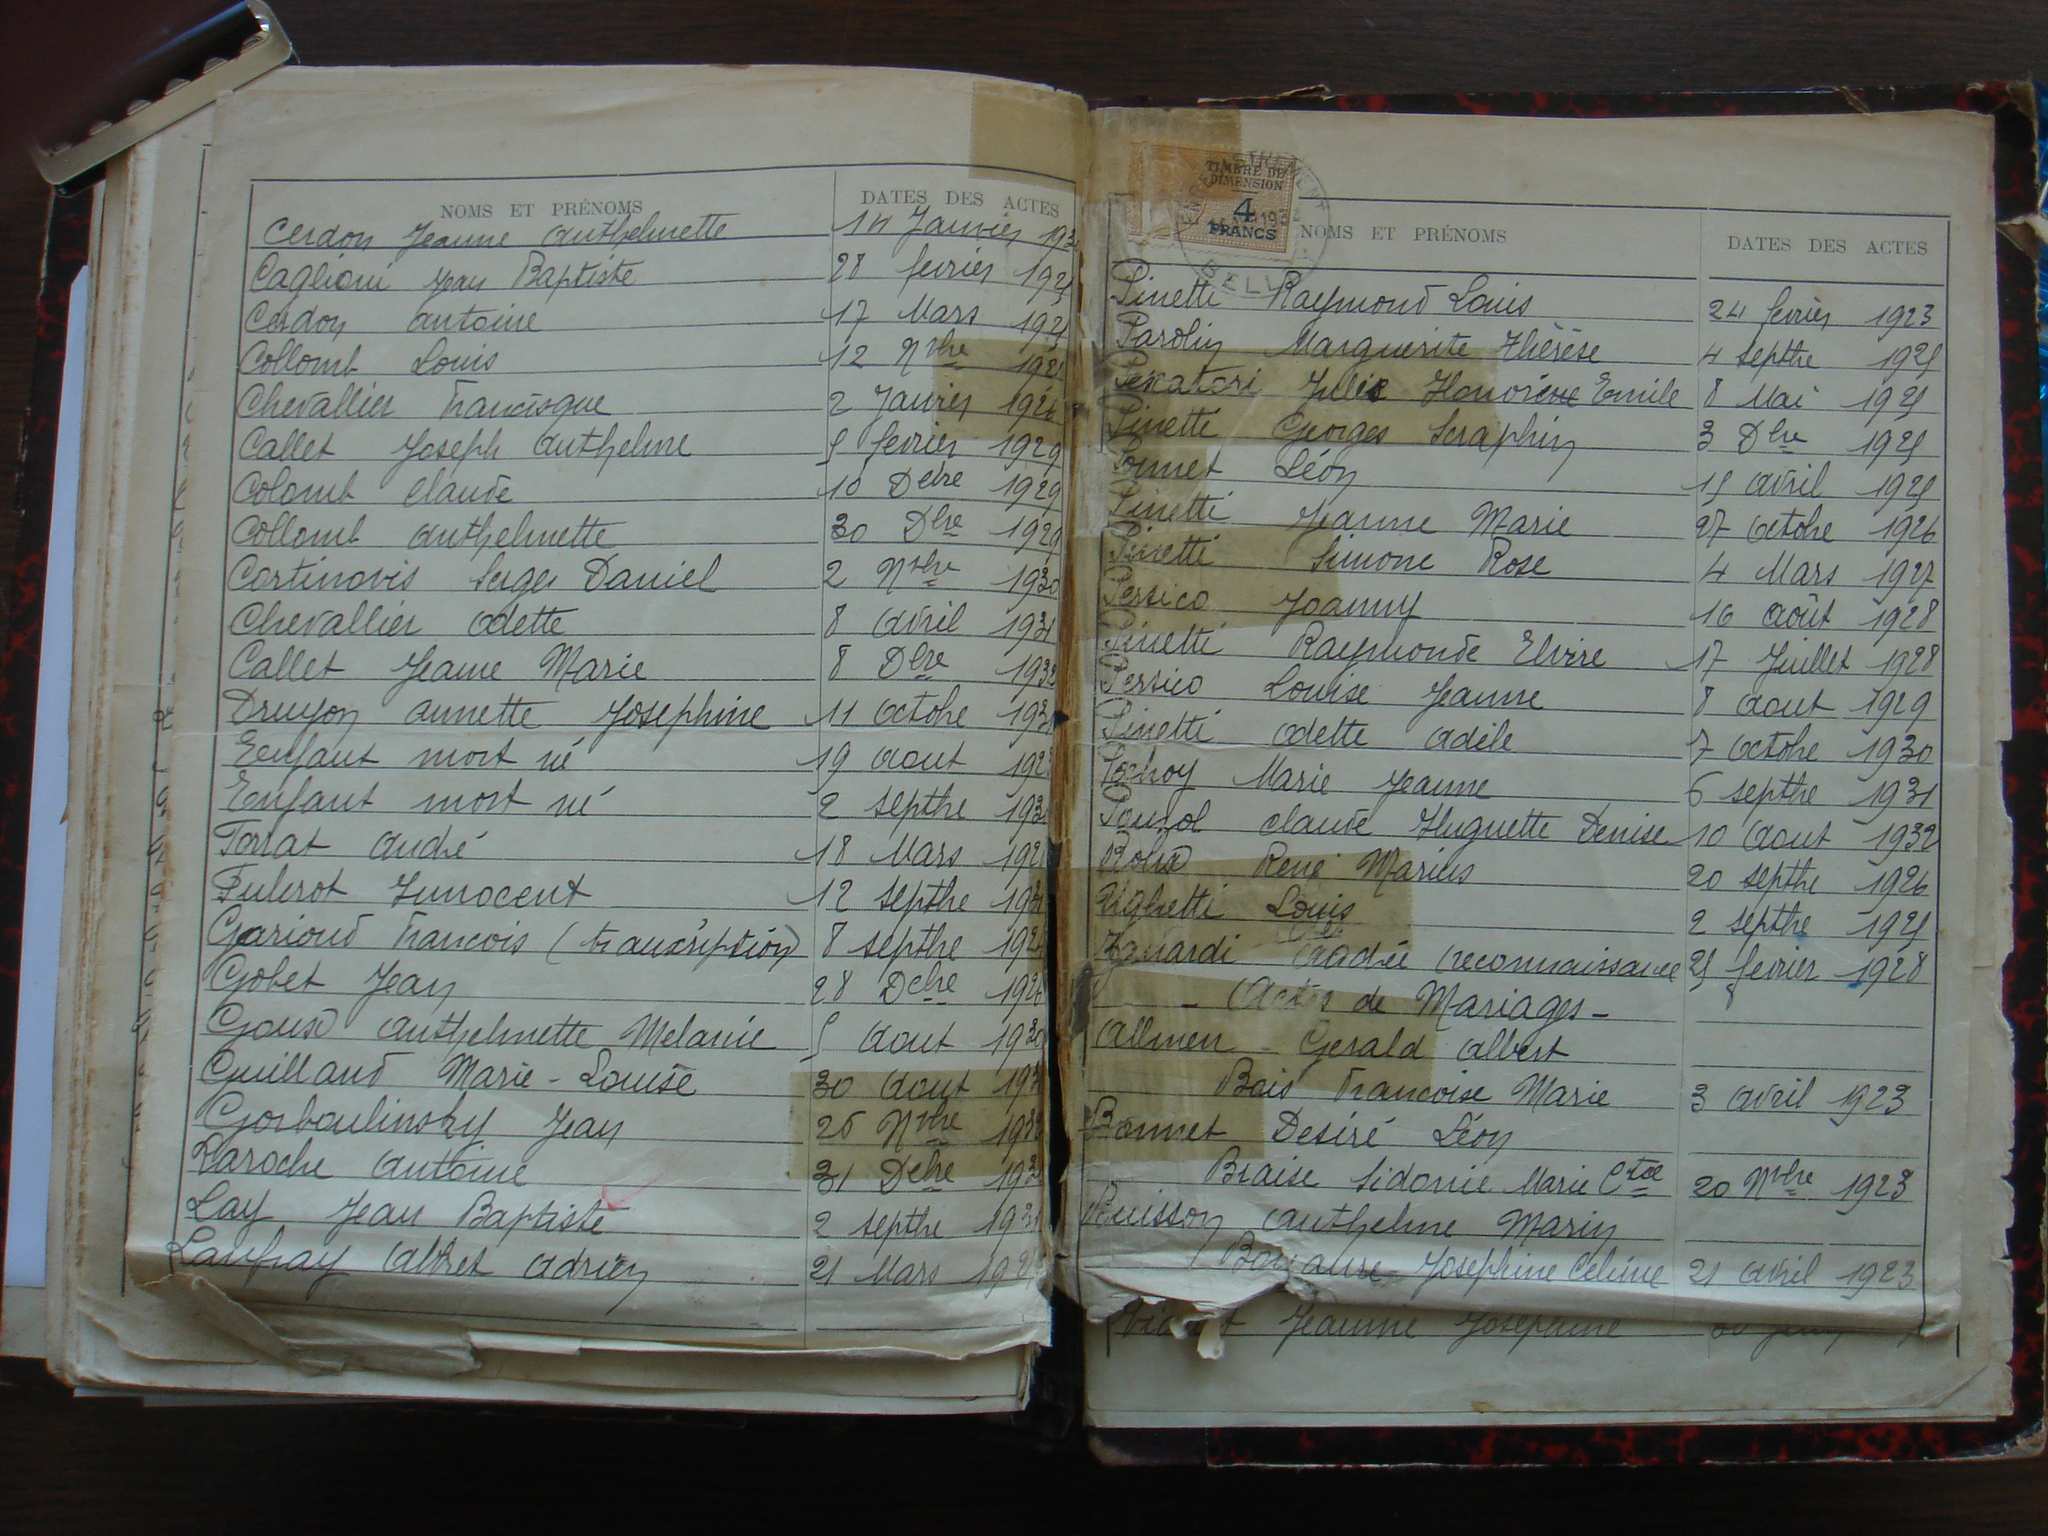 NOMS ET PRÉNOMS DATES DES ACTES
Cerdon Jeanne Anthelmette 14 Janvier
Caglioni Jean Baptiste 28 fevrier
Cerdon Antoine 17 Mars
Collomb Louis 12 Nbre
Chevallier Francisque 2 Janvier 1926
Callet Joseph Anthelme 5 fevrier 1929
Colomb Claude 10 Dcbre 1929
Collomb Anthelmette 30 Dbre 1929
Cortinovis Serges Daniel 2 Nvbre 1930
Chevallier Odette 8 Avril 1931
Callet Jeanne Marie 8 Dbre 1932
Druyon Annette Josephine 11 Octobre
Enfant mort né 19 Aout
Enfant mort né 2 Septbre
Forrat André 18 Mars
Innocent 12 Septbre
Garioud Francois (transcription) 8 Septbre
Gobet Jean 28 Dcbre 1926
Goux Anthelmette Melanie 5 Aout 1930
Guilland Marie-Louise 30 Aout
Gorboulinsky Jean 26 Nvbre
Laroche Antoine 31 Dcbre
Lay Jean Baptiste 2 Septbre
Adrien 21 Mars
TIMBRE DE
DIMENSION
4
FRANCS
NOMS ET PRÉNOMS DATES DES ACTES
Pinetti Raymond Louis 24 fevrier 1923
Parolin Marguerite Thérèse 4 Septbre 1925
Emile 8 Mai 1925
Pinetti Georges Seraphin 3 Dbre 1925
Ponnet Léon 15 Avril 1925
Pinetti Jeanne Marie 27 Octobre 1926
Pinetti Simone Rose 4 Mars 1927
Persico Joanny 16 Août 1928
Pinetti Raymonde Elvire 17 Juillet 1928
Persico Louise Jeanne 8 Aout 1929
Pinetti Odette Adèle 7 Octobre 1930
Marie Jeanne 6 Septbre 1931
Claude Huguette Denise 10 Aout 1932
René Marius 20 Septbre 1926
Louis 2 Septbre 1925
Zanardi André (reconnaissance 25 fevrier 1928
- Actes de Mariages -
Allmen Gerald Albert
Bois Francoise Marie 3 Avril 1923
Bonnet Desiré Léon
Braise Sidonie Marie Ctce 20 Nvbre 1923
Buisson Anthelme Marin
Josephine Celine 21 Avril 1923
Jeanne Josephine